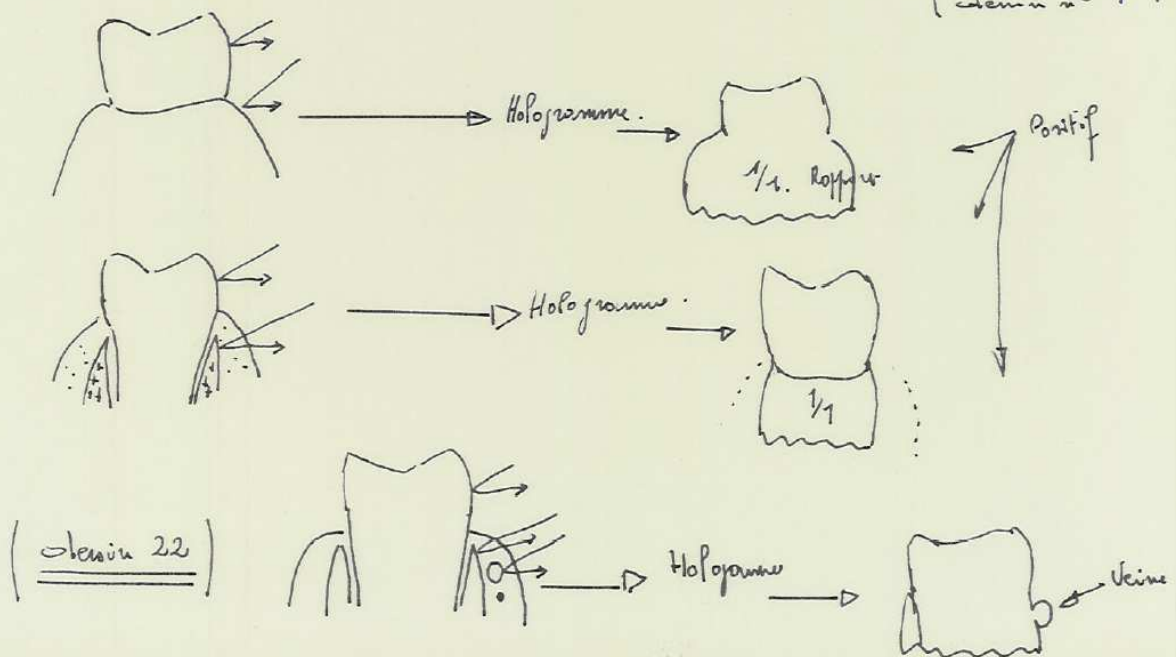 Hologramme.
1/1. Rapport
Positif
Hologramme.
1/1
( dessin 22 )
Hologramme
Veine